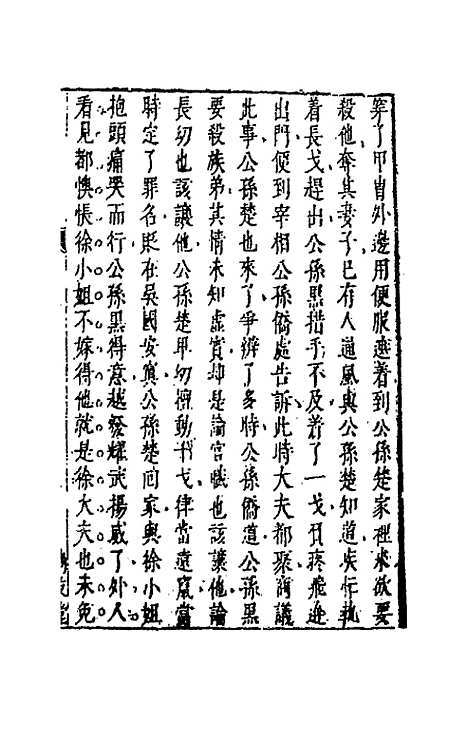 穿了甲冑外邊用便服遮着到公孫楚家裡來欲要
殺他奪其妻子已有人通風與公孫楚知道疾忙執
着長戈趕出公孫黑措手不及着了一戈負疼飛逃
出門便到宰相公孫僑處告訴此時大夫都聚商議
此事公孫楚也來了爭辨了多時公孫僑道公孫黑
要殺族弟其情未知虛實却是論官職也該讓他論
長幼也該讓他公孫楚卑幼擅動干戈律當遠竄當
時定了罪名貶在吳國安寘公孫楚回家與徐小姐
抱頭痛哭而行公孫黑得意越發耀武揚威了外人
看見都懊悵徐小姐不嫁得他就是徐大夫也未免